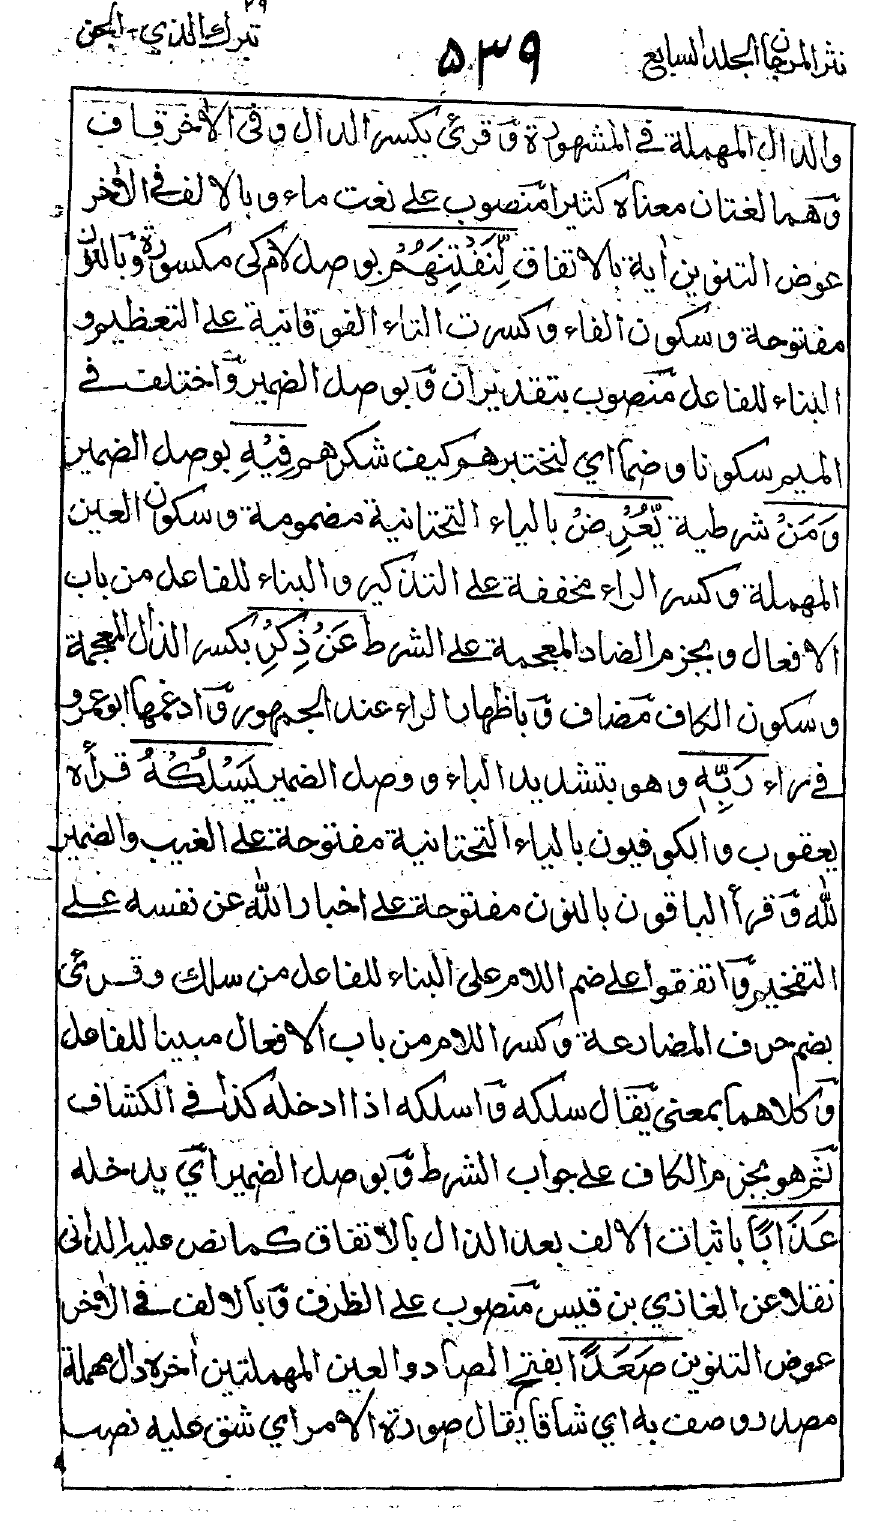 نثر المرجان الجلد السابع
۵۳۹
تبرك الذي ۲۹ - الجن
والدال المهملة في المشهورة وقرئ بكسر الدال وفي الاٰخر قاف
وهما لغتان معناه كثيرا منصوب على نعت ماء وبالالف في الاٰخر
عوض التنوين اٰية بالاتفاق لِّنَفْتِنَهُمْ بوصل لام كي مكسورة وبالنون
مفتوحة وسكون الفاء وكسرت التاء الفوقانية على التعظيم و
البناء للفاعل منصوب بتقدير ان وبوصل الضمير واختلف في
الميم سكونا وضما اي لنختبرهم كيف شكرهم فِيْهِ بوصل الضمير
وَمَنْ شرطية يُّعْرِضْ بالياء التحتانية مضمومة وسكون العين
المهملة وكسر الراء مخففة على التذكير والبناء للفاعل من باب
الافعال وبجزم الضاد المعجمة على الشرط عَنْ ذِكْرِ بكسر الذال المعجمة
وسكون الكاف مضاف وباظهار الراء عند الجمهور وادغمها ابو عمرو
في راء رَبِّهٖ وهو بتشديد الباء ووصل الضمير يَسْلُكْهُ قرأه
يعقوب والكوفيون بالياء التحتانية مفتوحة على الغيب والضمير
لله وقرأ الباقون بالنون مفتوحة على اخبار الله عن نفسه على
التفخيم واتفقوا على ضم اللام على البناء للفاعل من سلك وقرئ
بضم حرف المضارعة وكسر اللام من باب الافعال مبينا للفاعل
وكلاهما بمعنى يقال سلكه واسلكه اذا ادخله كذا في الكشاف
ثم هو بجزم الكاف على جواب الشرط وبوصل الضمير اي يدخله
عَذَابًا باثبات الالف بعد الذال بالاتفاق كما نص عليه الداني
نقلا عن الغازي بن قيس منصوب على الظرف وبالالف في الاٰخر
عوض التنوين صَعَدًا بفتح الصاد والعين المهملتين اٰخره دال مهملة
مصدر وصف به اي شاقا يقال صودة الامر اي شق عليه نصب